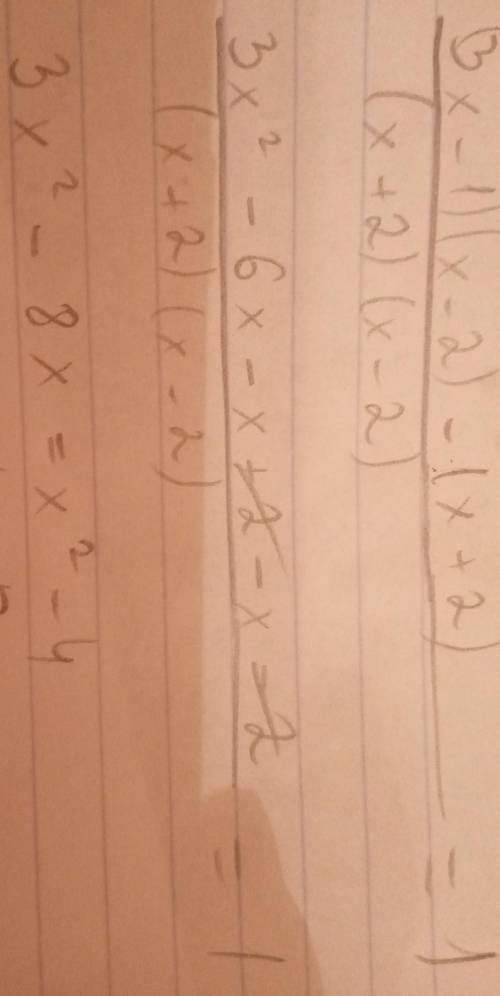 (3x - 1)(x - 2) - (x + 2) = 1
(x + 2)(x - 2)
3x² - 6x - x + 2 - x - 2 = 1
(x + 2)(x - 2)
3x² - 8x = x² - 4